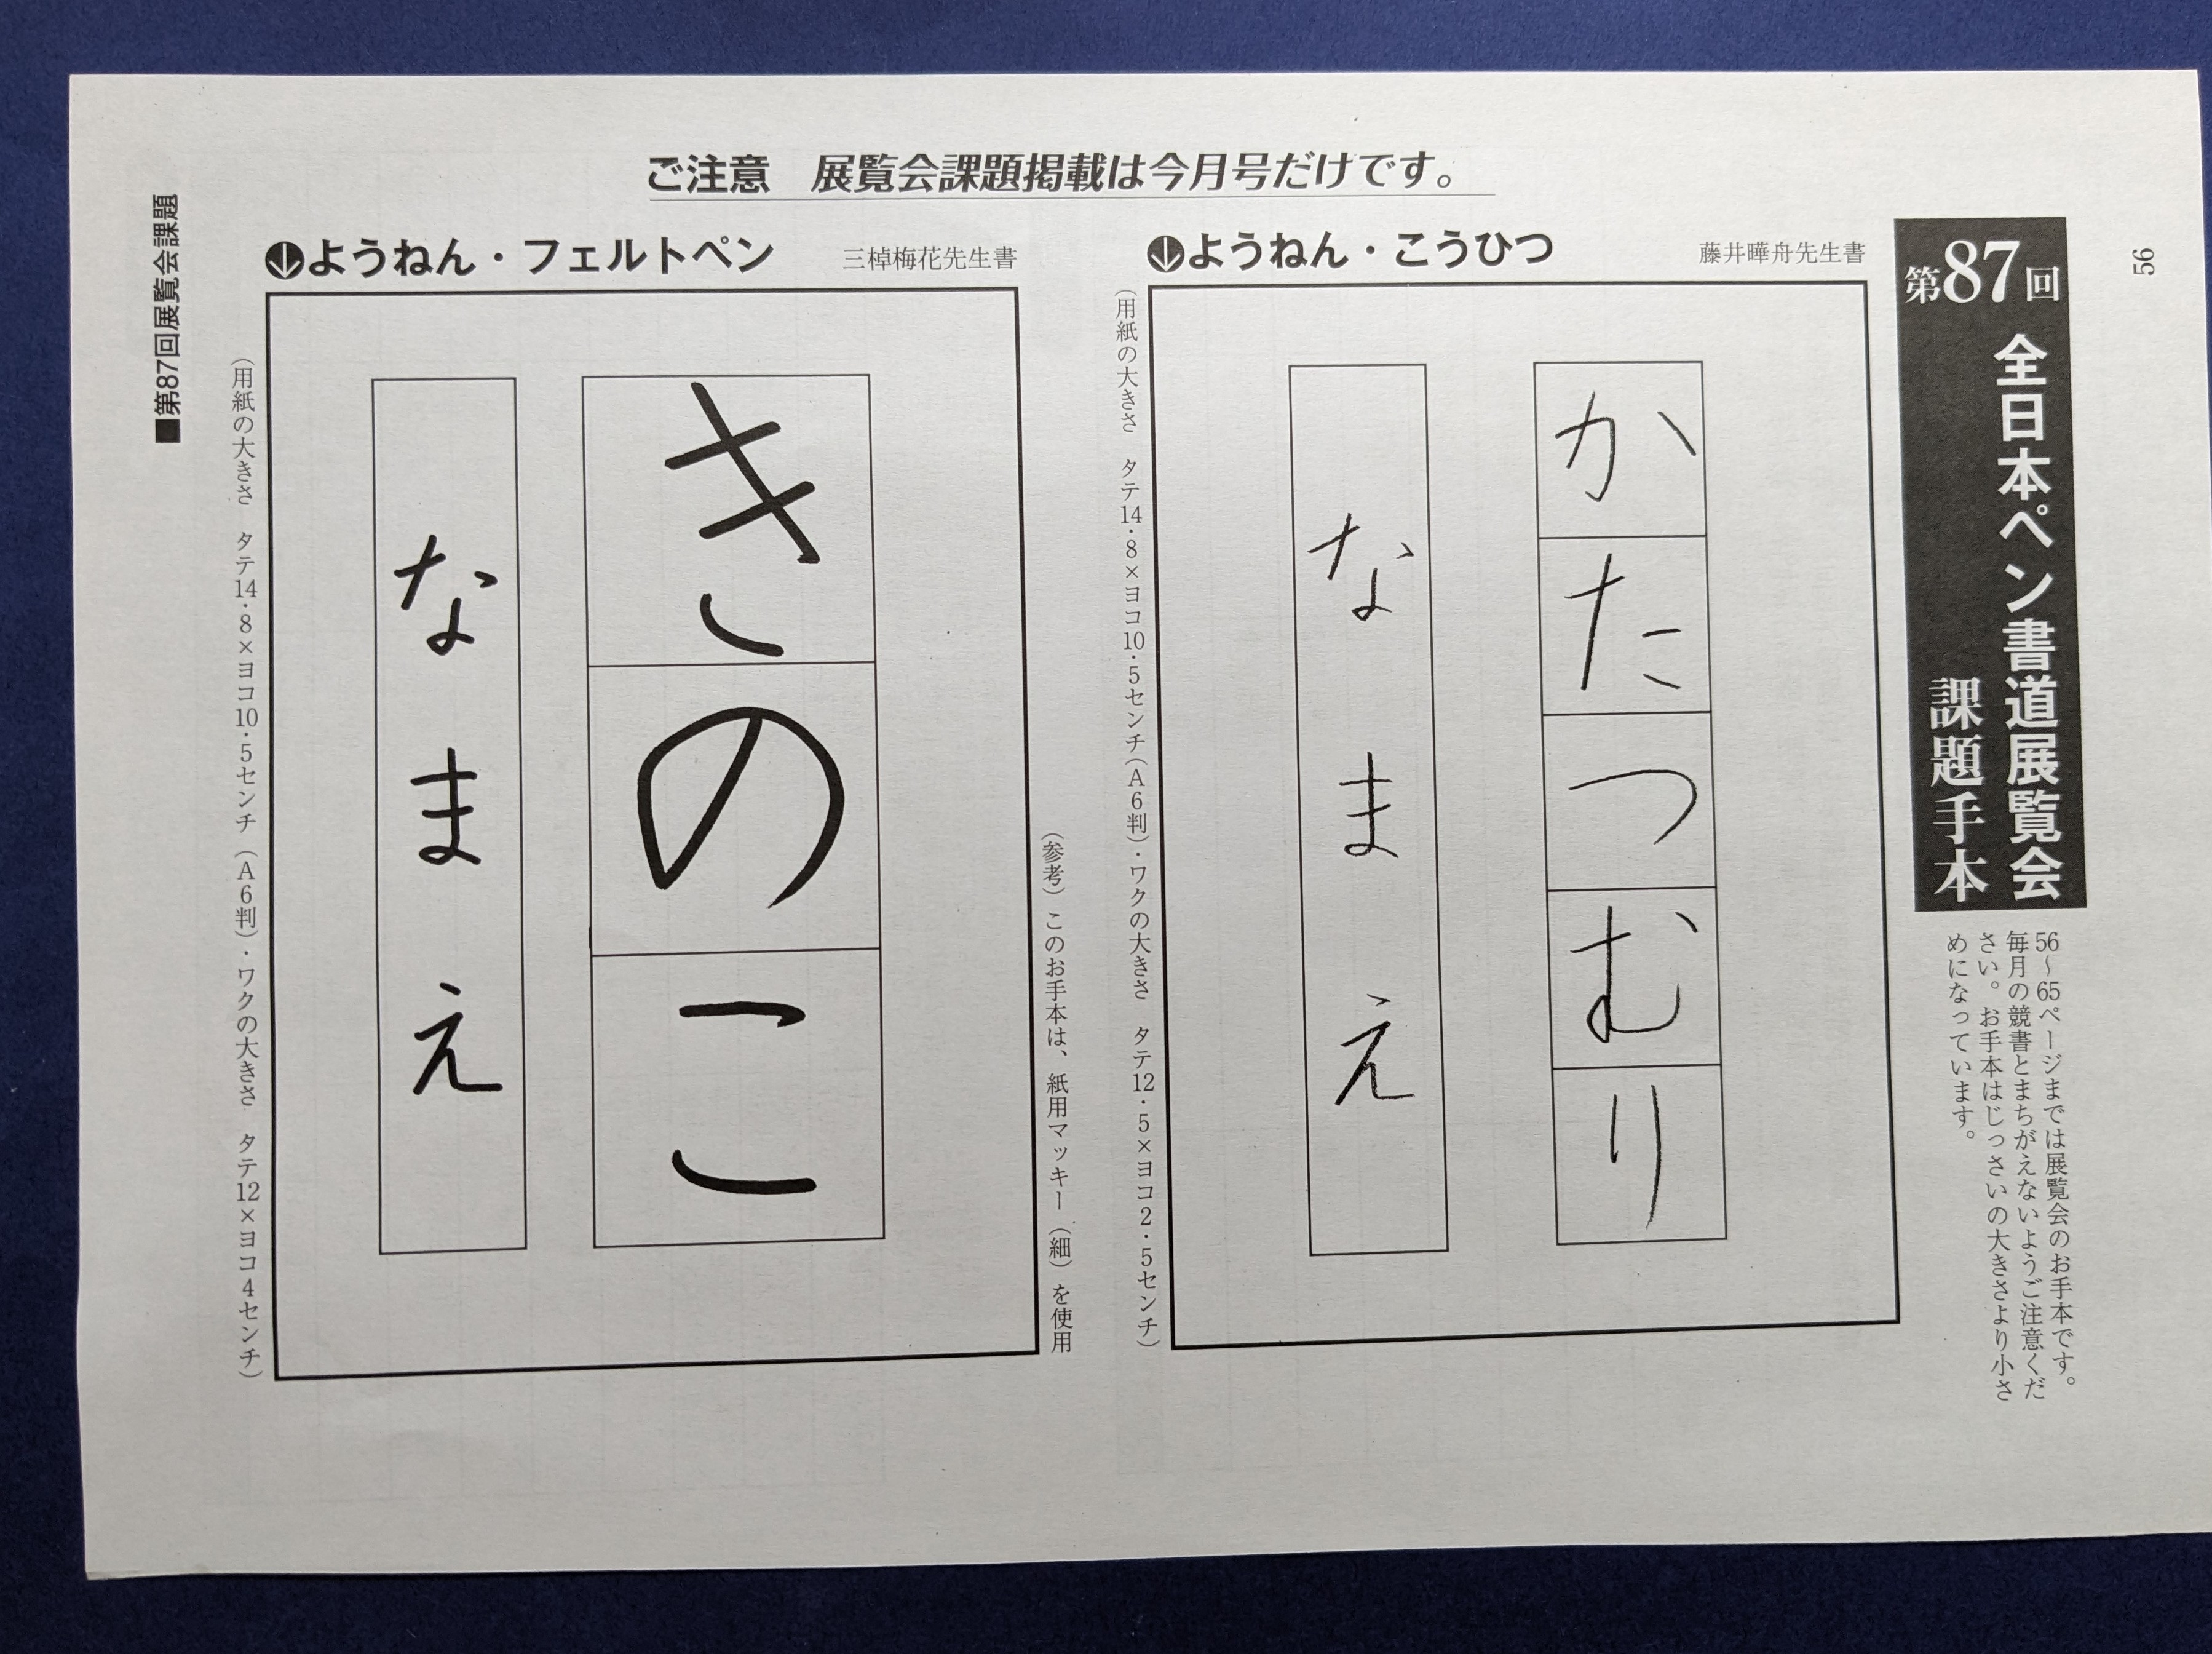 ご注意　展覧会課題掲載は今月号だけです。
56
第87回
全日本ペン書道展覧会
課題手本
56〜65ページまでは展覧会のお手本です。
毎月の競書とまちがえないようご注意くだ
さい。お手本はじっさいの大きさより小さ
めになっています。
ようねん・こうひつ
藤井曄舟先生書
かたつむり
なまえ
（用紙の大きさ　タテ14・8×ヨコ10・5センチ（A6判）・ワクの大きさ　タテ12・5×ヨコ2・5センチ）
ようねん・フェルトペン
三棹梅花先生書
（参考）このお手本は、紙用マッキー（細）を使用
きのこ
なまえ
（用紙の大きさ　タテ14・8×ヨコ10・5センチ（A6判）・ワクの大きさ　タテ12×ヨコ4センチ）
■第87回展覧会課題